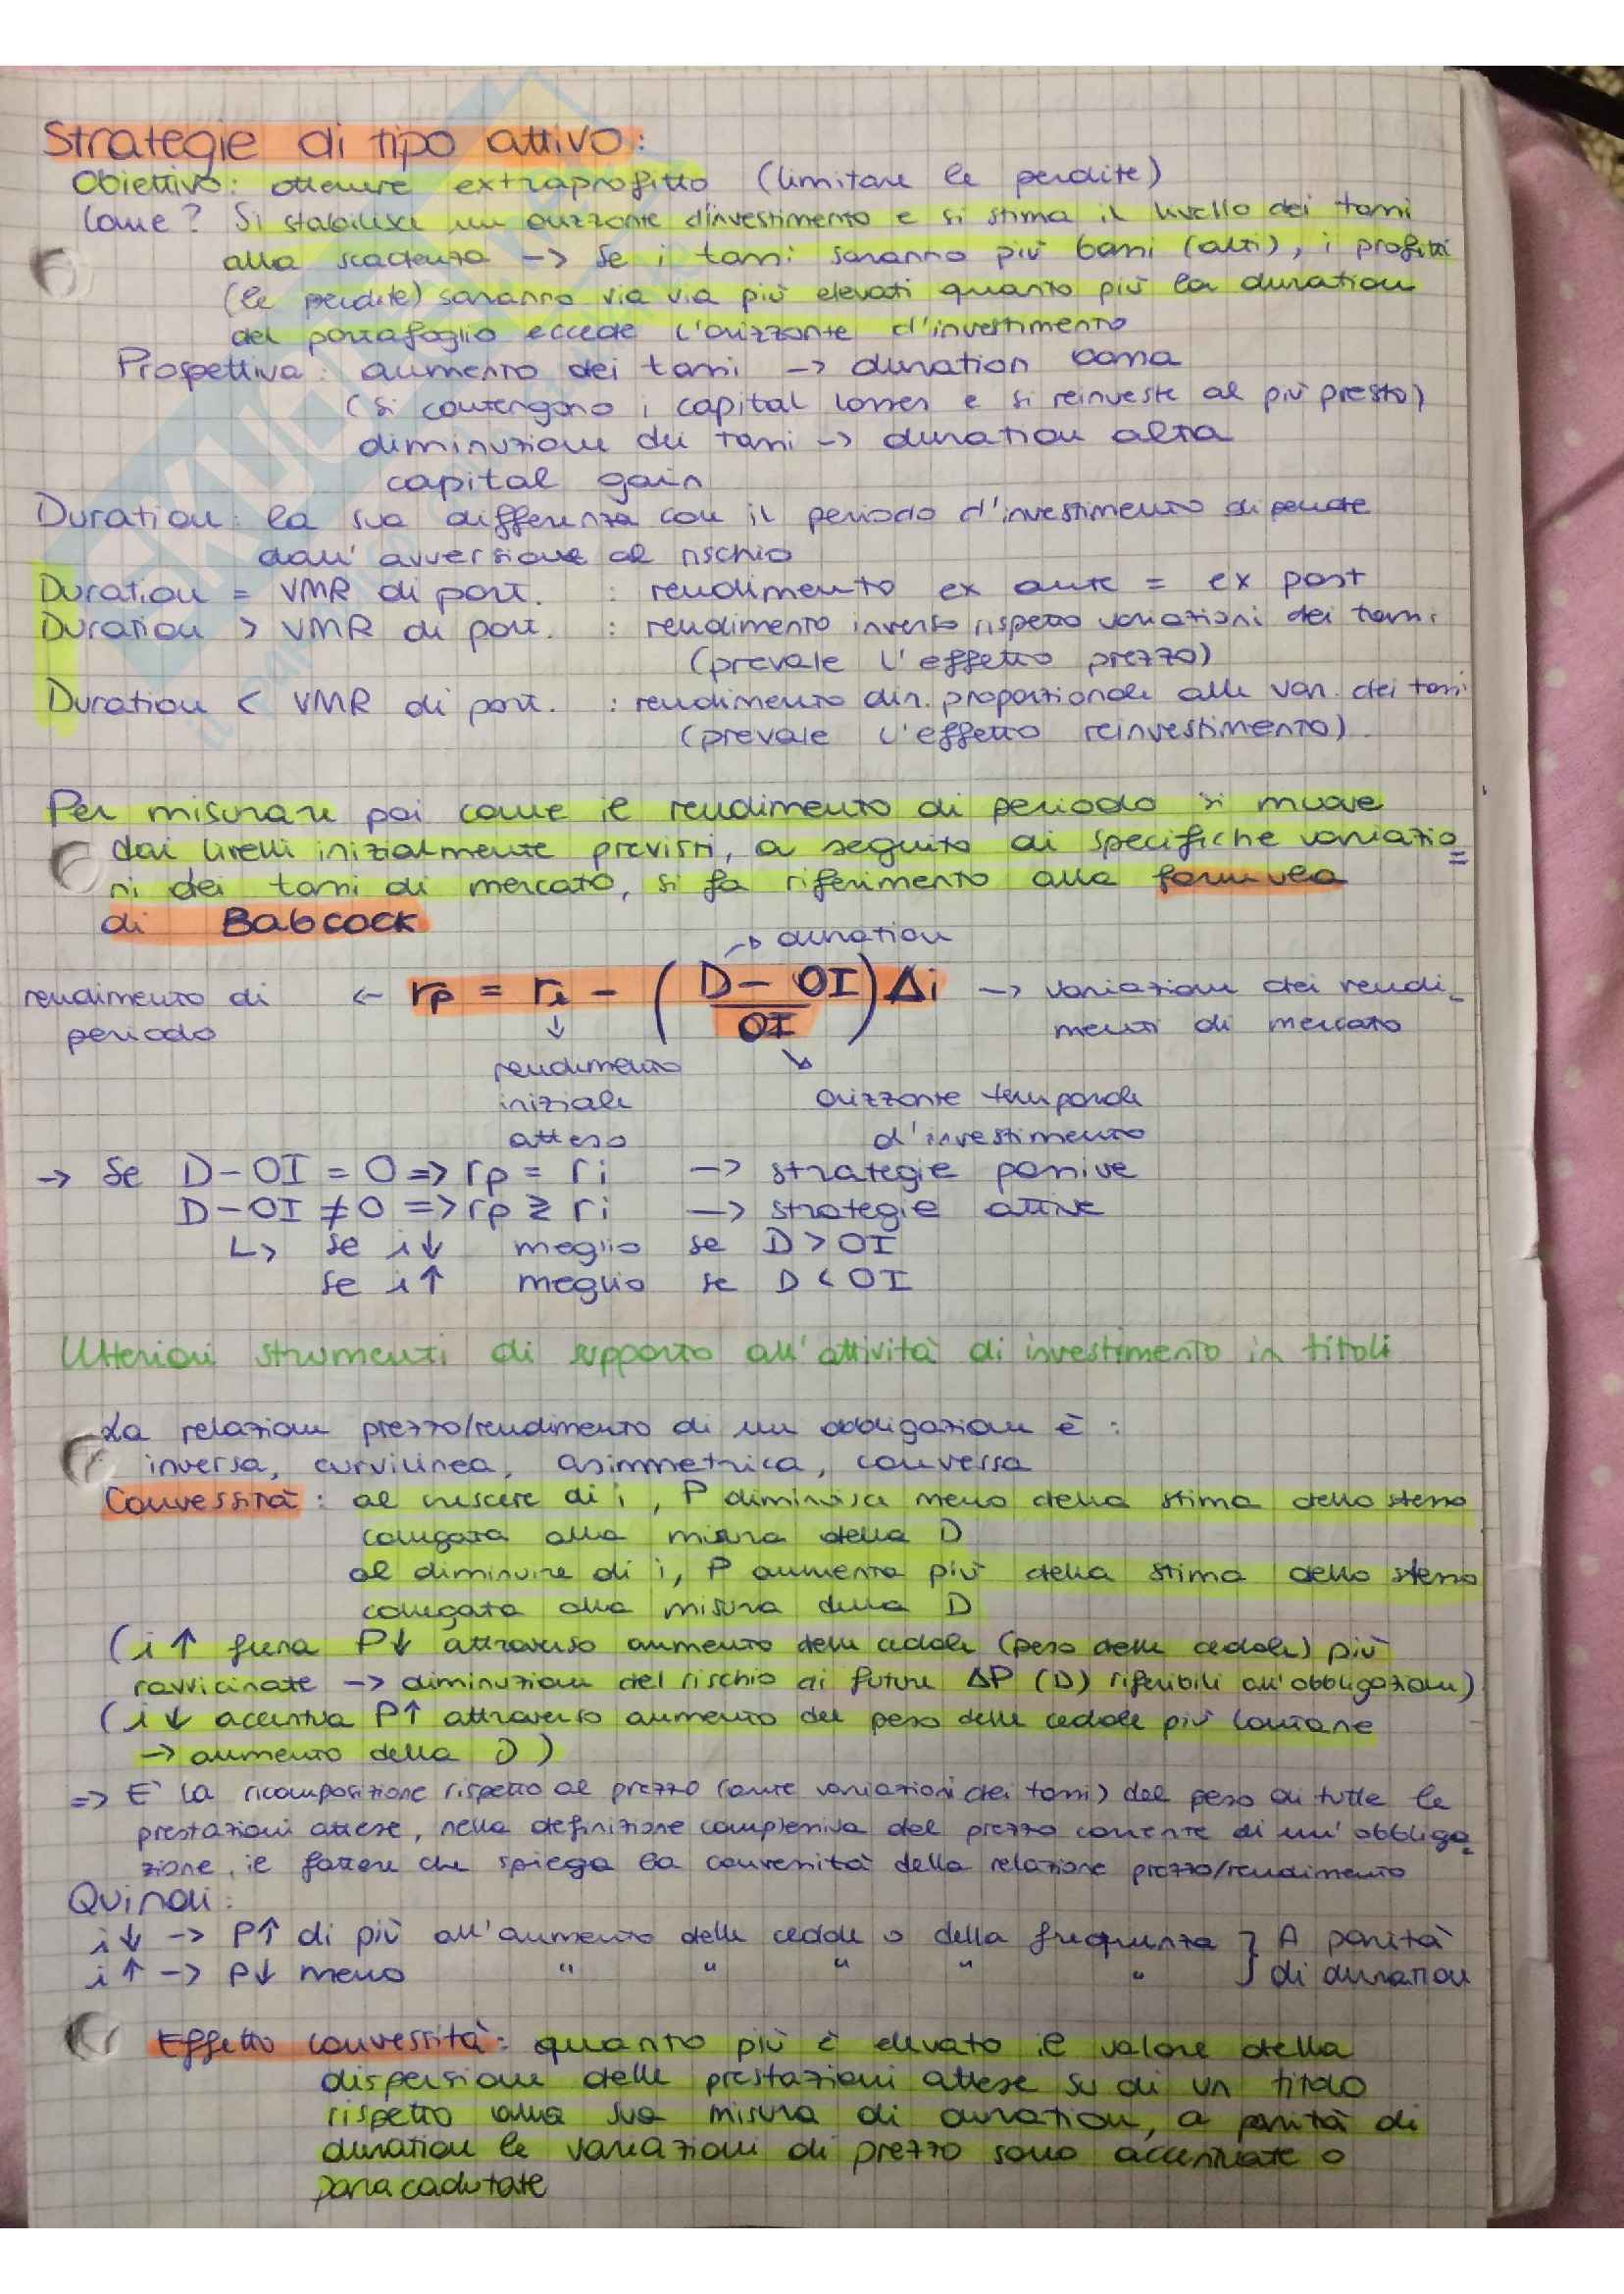 Strategie di tipo attivo:
Obiettivo: ottenere extraprofitto (limitare le perdite)
Come? Si stabilisce un orizzonte d'investimento e si stima il livello dei tassi
alla scadenza -> Se i tassi saranno più bassi (alti), i profitti
(le perdite) saranno via via più elevati quanto più la duration
del portafoglio eccede l'orizzonte d'investimento
Prospettiva: aumento dei tassi -> duration bassa
(si contengono i capital losses e si reinveste al più presto)
diminuzione dei tassi -> duration alta
capital gain
Duration: la sua differenza con il periodo d'investimento dipende
dall'avversione al rischio
Duration = VMR di port. : rendimento ex ante = ex post
Duration > VMR di port. : rendimento inverso rispetto variazioni dei tassi
(prevale l'effetto prezzo)
Duration < VMR di port. : rendimento dir. proporzionale alle var. dei tassi
(prevale l'effetto reinvestimento)
Per misurare poi come il rendimento di periodo si muove
dai livelli inizialmente previsti, a seguito di specifiche variazio=
ni dei tassi di mercato, si fa riferimento alla formula
di Babcock
-> duration
rendimento di <- rp = ri - ((D - OI)/OI) Δi -> variazione dei rendi_
periodo ↓ menti di mercato
rendimento ↘
iniziale orizzonte temporale
atteso d'investimento
-> Se D-OI = 0 => rp = ri -> strategie passive
D-OI ≠ 0 => rp ≷ ri -> strategie attive
L> se i↓ meglio se D > OI
se i↑ meglio se D < OI
Ulteriori strumenti di supporto all'attività di investimento in titoli
La relazione prezzo/rendimento di un obbligazione è:
inversa, curvilinea, asimmetrica, convessa
Convessità: al crescere di i, P diminuisce meno della stima dello stesso
collegata alla misura della D
al diminuire di i, P aumenta più della stima dello stesso
collegata alla misura della D
(i↑ frena P↓ attraverso aumento delle cedole (peso delle cedole) più
ravvicinate -> diminuzione del rischio di future ΔP (D) riferibili all'obbligazione)
(i↓ accentua P↑ attraverso aumento del peso delle cedole più lontane
-> aumento della D)
=> E' la ricomposizione rispetto al prezzo (ante variazioni dei tassi) del peso di tutte le
prestazioni attese, nella definizione complessiva del prezzo corrente di un'obbliga=
zione, il fattore che spiega la convessità della relazione prezzo/rendimento
Quindi:
i↓ -> P↑ di più all'aumento delle cedole o della frequenza } A parità
i↑ -> P↓ meno " " " " " } di duration
Effetto convessità: quanto più è elevato il valore della
dispersione delle prestazioni attese su di un titolo
rispetto alla sua misura di duration, a parità di
duration le variazioni di prezzo sono accentuate o
paracadutate